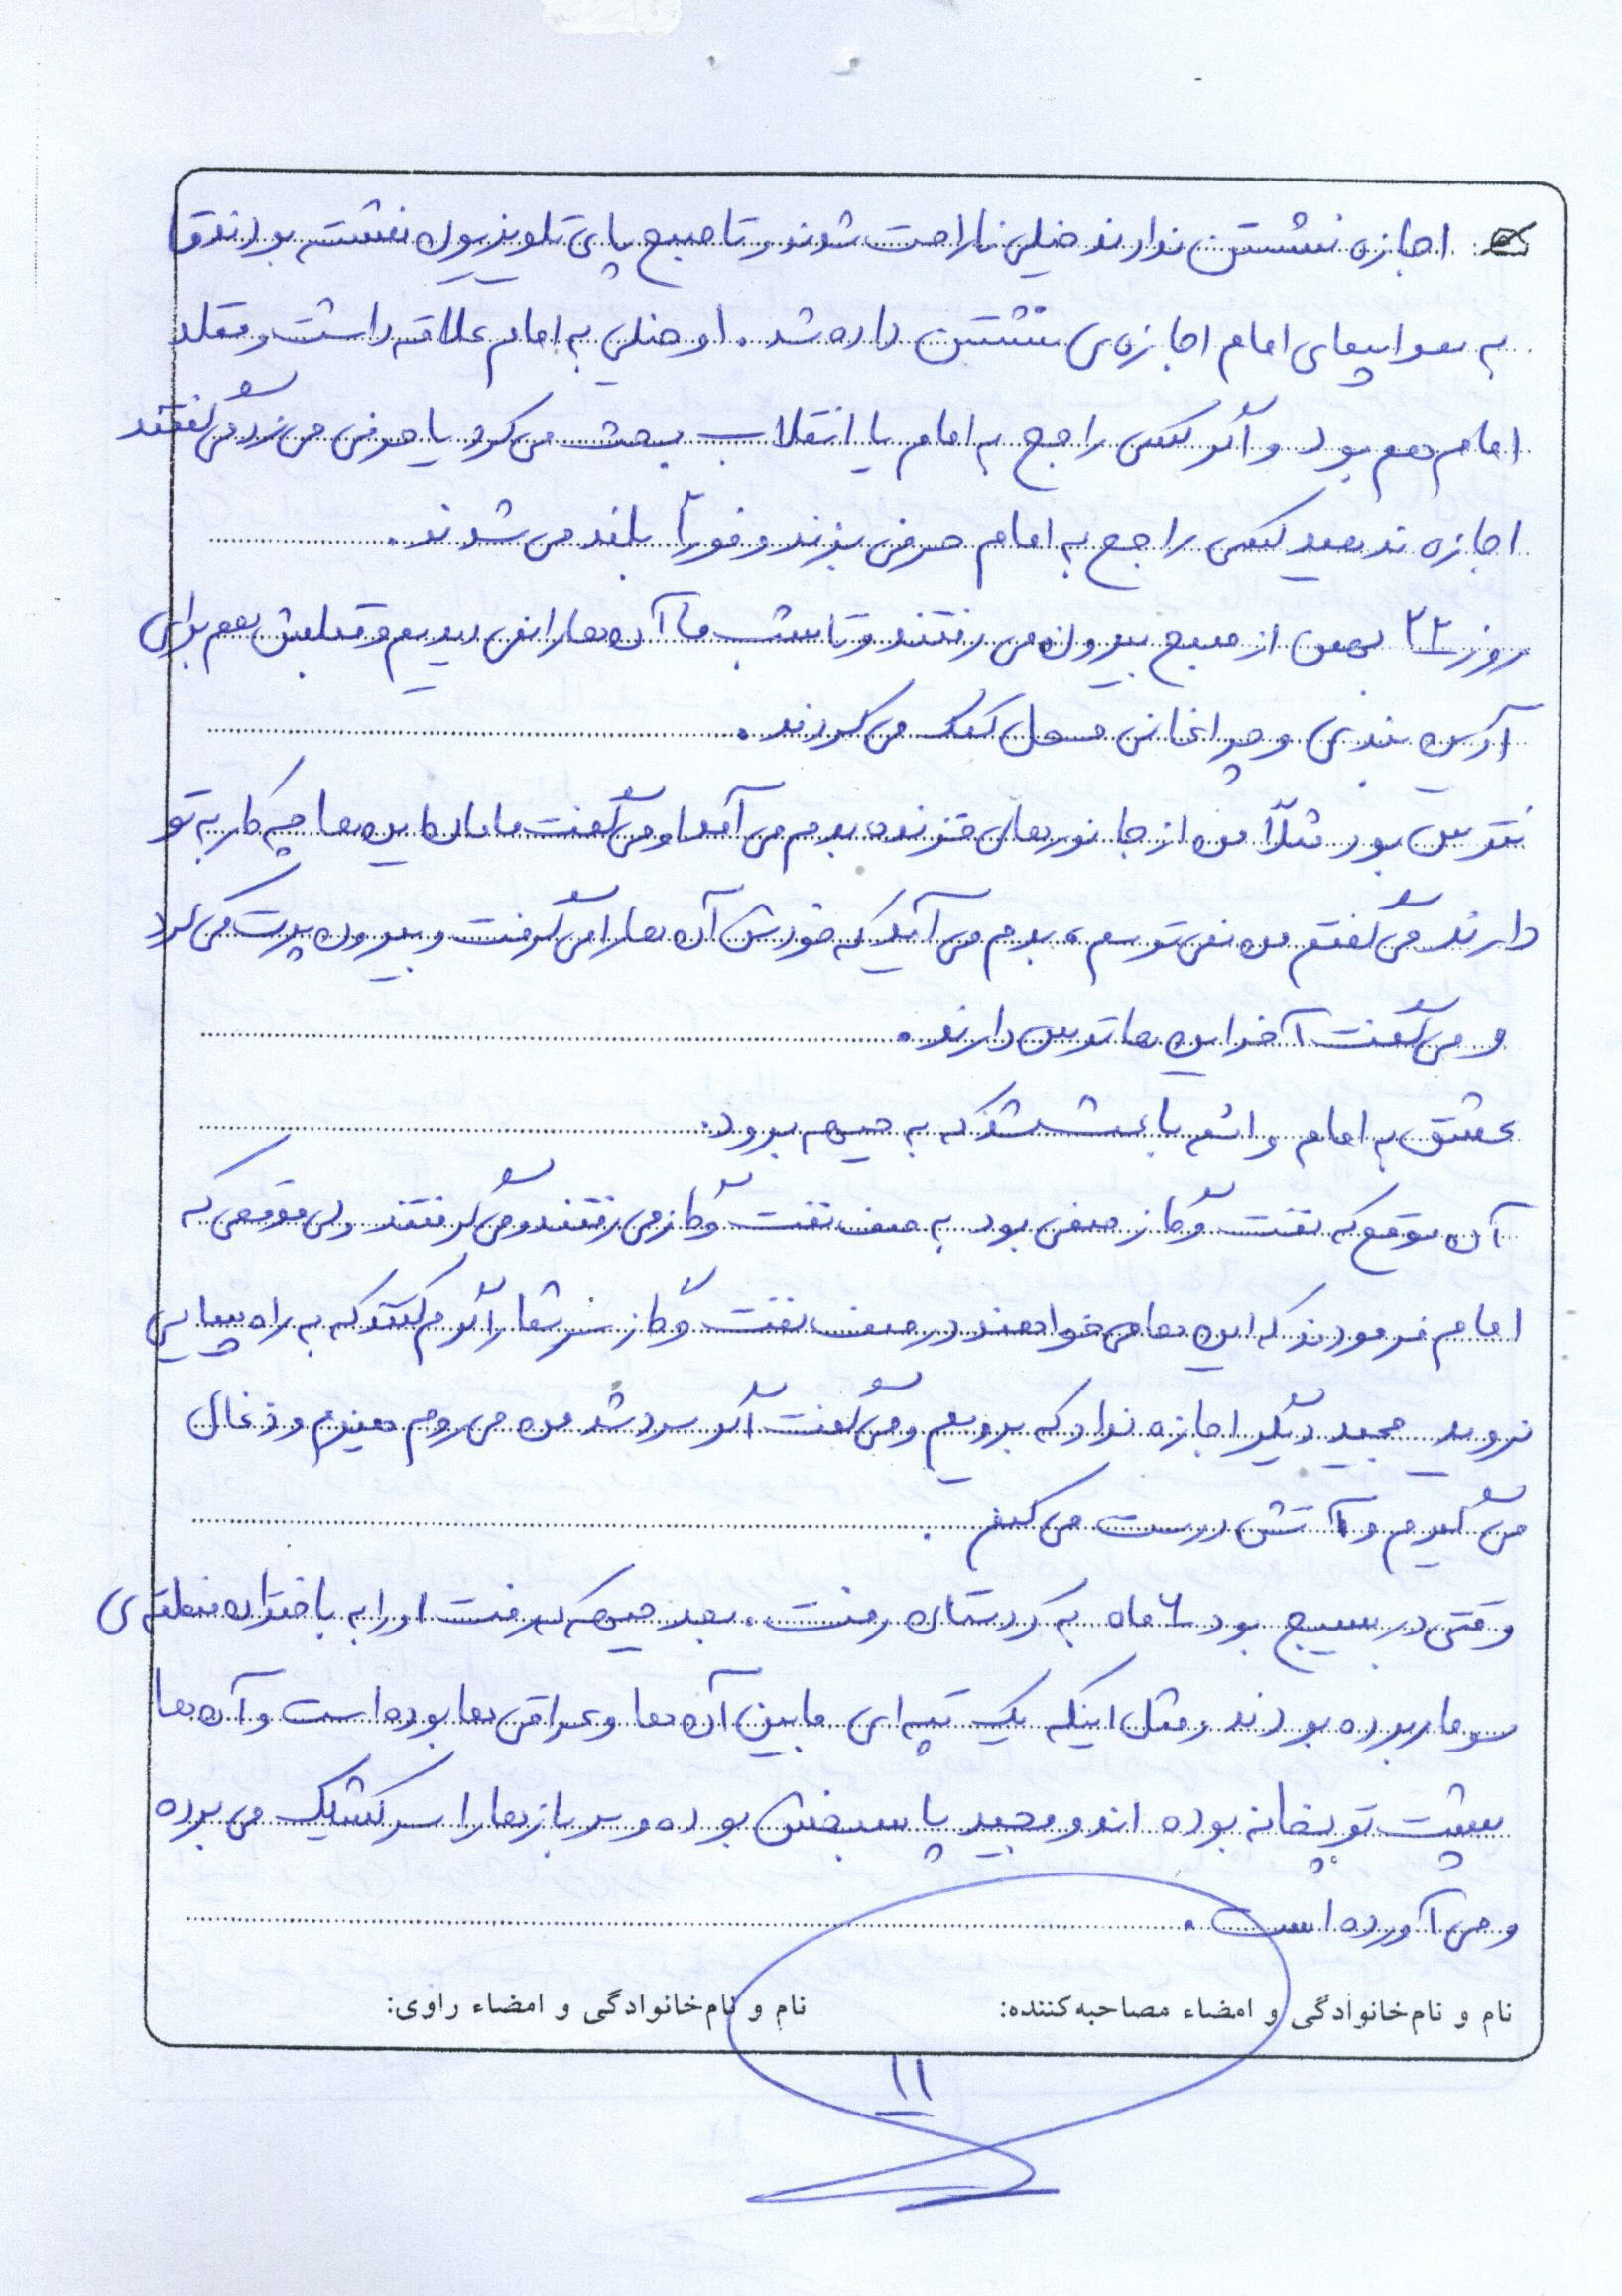 اجازه نشستن ندارند خیلی ناراحت شدند و تا صبح پای تلویزیون نشسته بودند تا
به هواپیمای امام اجازه‌ی نشستن داده شد. او خیلی به امام علاقه داشت و مقلد
امام هم بود و اگر کسی راجع به امام یا انقلاب بحث می‌کرد یا حرفی می‌زد می‌گفتند
اجازه ندهید کسی راجع به امام حرفی بزند و فوراً بلند می‌شدند.
روز ۲۲ بهمن از صبح بیرون می‌رفتند و تا شب ما آن‌ها را نمی‌دیدیم و قبلش هم برای
آذین بندی و چراغانی محل کمک می‌کردند.
نترس بود مثلاً من از جانورهای خزنده بدم می‌آمد او می‌گفت مامان این‌ها چه کار به تو
دارند می‌گفتم من نمی‌ترسم، بدم می‌آید که خودش آن‌ها را می‌گرفت و بیرون پرت می‌کرد
و می‌گفت آخر این‌ها ترس دارند.
عشق به امام و ائمه باعث شد که به جبهه برود.
آن موقع که نفت و گاز صفی بود به صف نفت و گاز می‌رفتند و می‌گرفتند ولی موقعی که
امام فرمودند که این‌ها می‌خواهند در صف نفت و گاز سر شما را گرم کنند که به راه‌پیمایی
نروید مجید دیگر اجازه نداد که برویم و می‌گفت اگر سرد شد من می‌روم هیزم و ذغال
می‌گیرم و آتش درست می‌کنم.
وقتی در بسیج بود ۶ ماه به کردستان رفت. بعد جبهه که رفت او را به باختران منطقه‌ی
سومار برده بودند و مثل اینکه یک تپه‌ای مابین آن‌ها و عراقی‌ها بوده است و آن‌ها
پشت توپخانه بوده اند و مجید پاسبخش بوده و سربازها را سر کشیک می‌برده
و می‌آورده است.
نام و نام‌خانوادگی و امضاء مصاحبه‌کننده: نام و نام‌خانوادگی و امضاء راوی:
۱۱